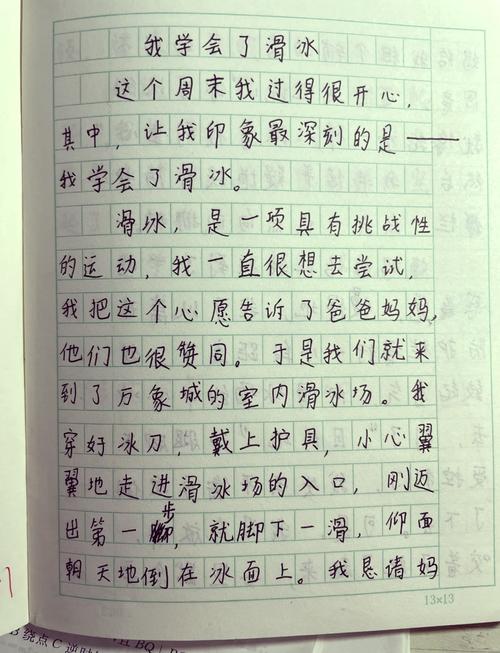 我学会了滑冰
这个周末我过得很开心,
其中，让我印象最深刻的是——
我学会了滑冰。
滑冰，是一项具有挑战性
的运动，我一直很想去尝试,
我把这个心愿告诉了爸爸妈妈,
他们也很赞同。于是我们就来
到了万象城的室内滑冰场。我
穿好冰刀，戴上护具，小心翼
翼地走进滑冰场的入口，刚迈
出第一步，就脚下一滑，仰面
朝天地倒在冰面上。我恳请妈
13×13
B 绕点 C 逆时